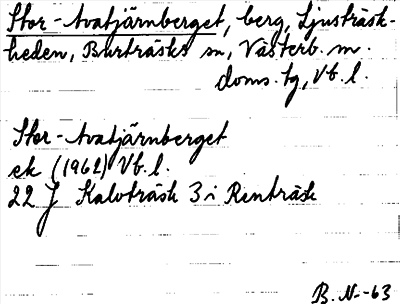 Stor-tvatjärnberget, berg, Ljusträsk-
heden, Burträsks sn, Västerb. m.
doms. tg, Vb. l.
Stor-tvatjärnberget
ek (1962) Vb. l.
22 J Kalvträsk 3 i Renträsk
B. N.-63